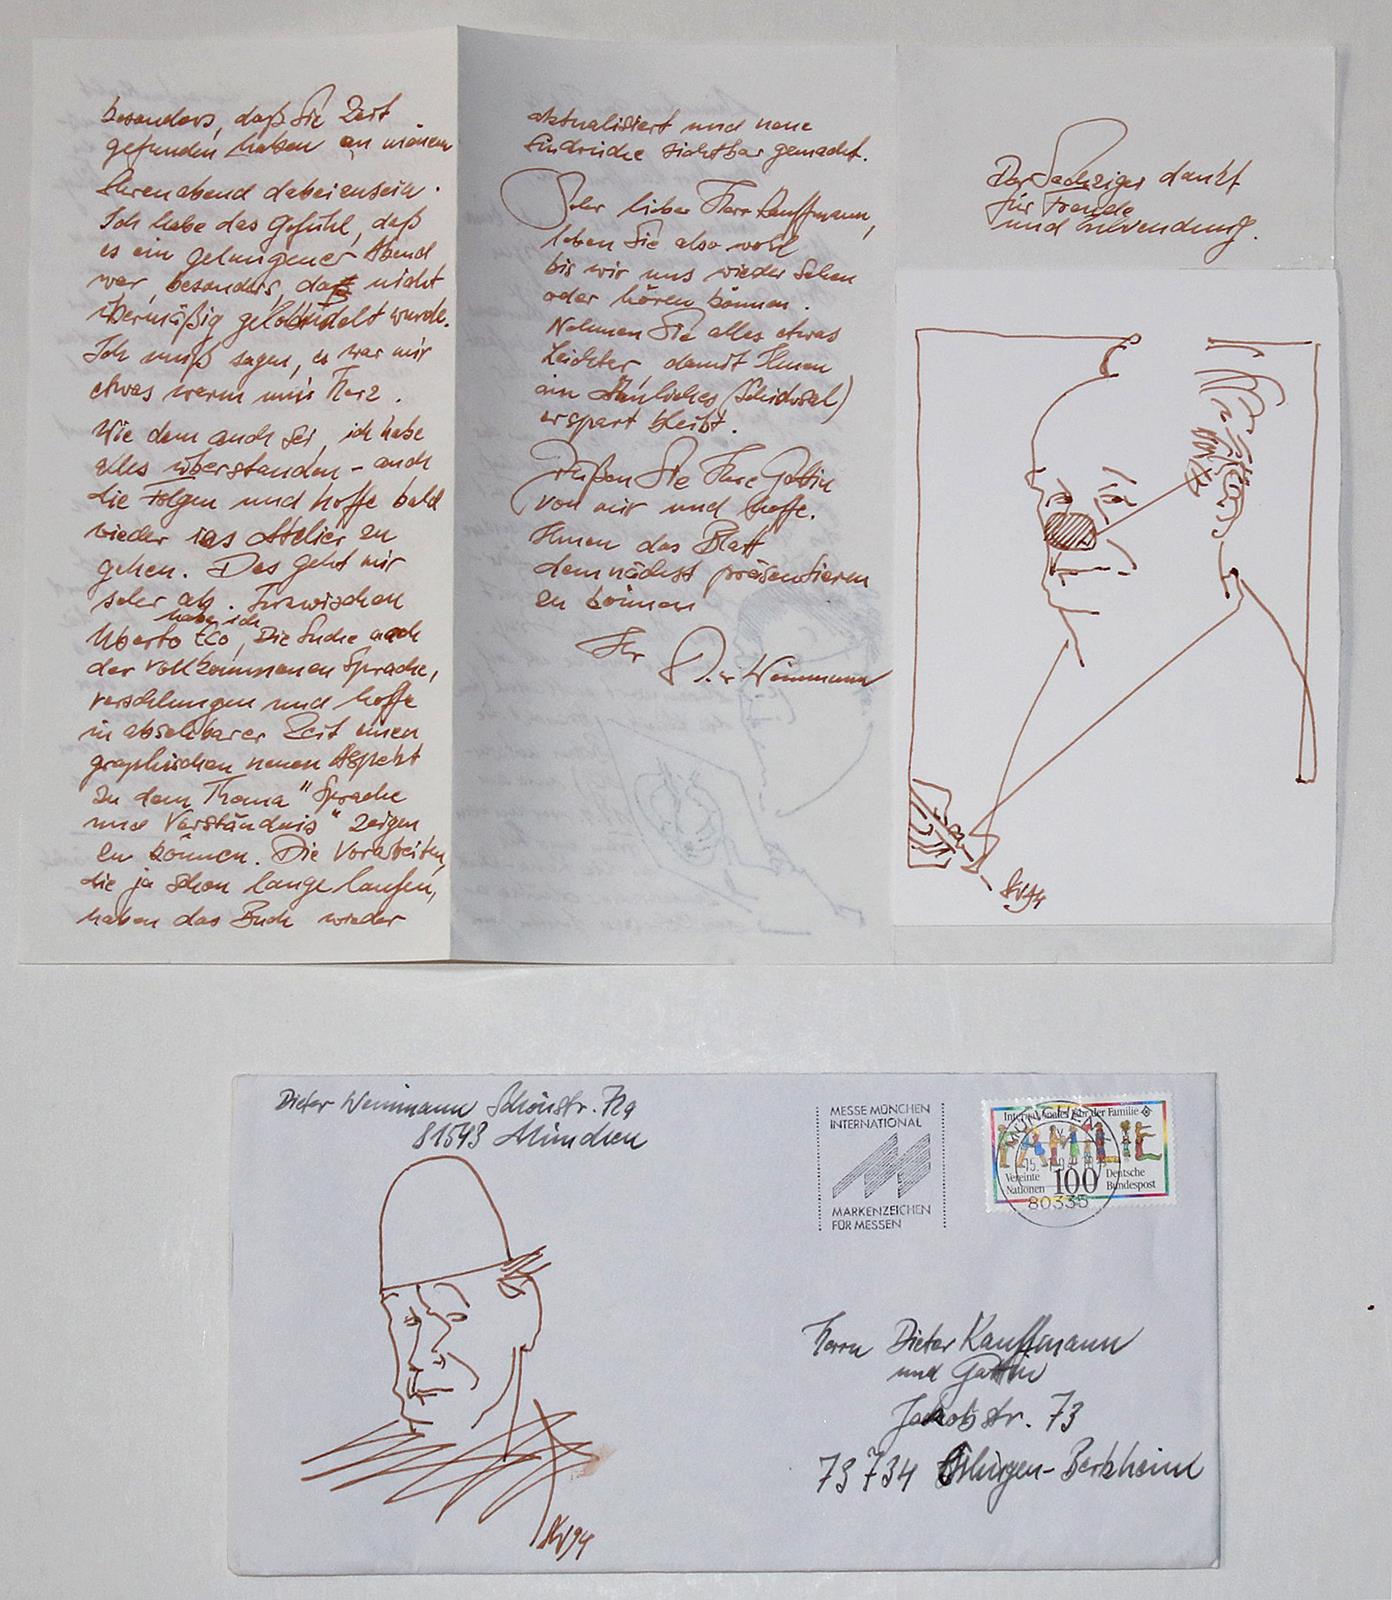 besonders, daß Sie Zeit
gefunden haben an meinem
Ehrenabend dabeizusein.
Ich habe das Gefühl, daß
es ein gelungener Abend
war, besonders, daß nicht
übermäßig gelobhudelt wurde.
Ich muß sagen, es war mir
etwas warm ums Herz.
Wie dem auch sei, ich habe
alles überstanden - auch
die Folgen und hoffe bald
wieder ins Atelier zu
gehen. Das geht mir
sehr ab. Inzwischen
habe ich
Umberto Eco, Die Suche nach
der vollkommenen Sprache,
verschlungen und hoffe
in absehbarer Zeit einen
graphischen neuen Aspekt
zu dem Thema "Sprache
und Verständnis" zeigen
zu können. Die Vorarbeiten,
die ja schon lange laufen,
haben das Buch wieder
aktualisiert und neue
Eindrücke sichtbar gemacht.
Sehr lieber Herr Kauffmann,
leben Sie also wohl
bis wir uns wieder sehen
oder hören können.
Nehmen Sie alles etwas
leichter, damit Ihnen
ein ähnliches (Schicksal)
erspart bleibt.
Grüßen Sie Ihre Gattin
von mir und hoffe.
Ihnen das Blatt
demnächst präsentieren
zu können
Ihr Dieter Weinmann
Der Sechziger dankt
für Freude
und Zuwendung.
DW94
Dieter Weinmann Schönstr. 72a
81543 München
MESSE MÜNCHEN
INTERNATIONAL
MARKENZEICHEN
FÜR MESSEN
Internationales Jahr der Familie
FAMILIE
Vereinte
Nationen
100
Deutsche
Bundespost
MÜNCHEN
80335
Herrn Dieter Kauffmann
und Gattin
Jakobstr. 73
73734 Esslingen-Berkheim
DW94